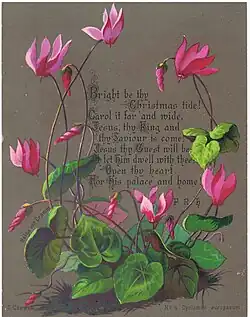 Bright be thy
Christmas tide!
Carol it far and wide,
Jesus, thy King and
thy Saviour is come
Jesus thy Guest will be
O let him dwell with thee,
Open thy heart
For his palace and home
F R H